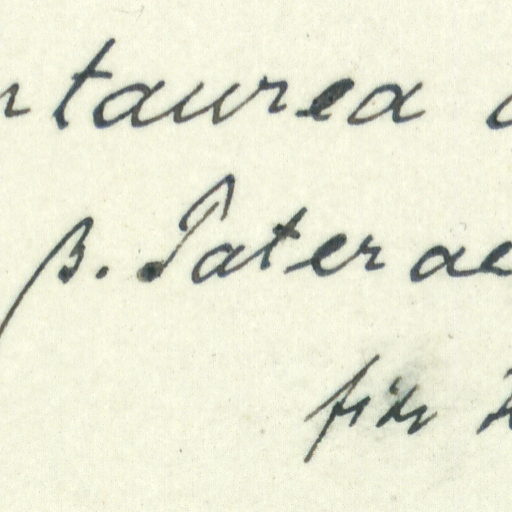 ntaurea
β. Paterae